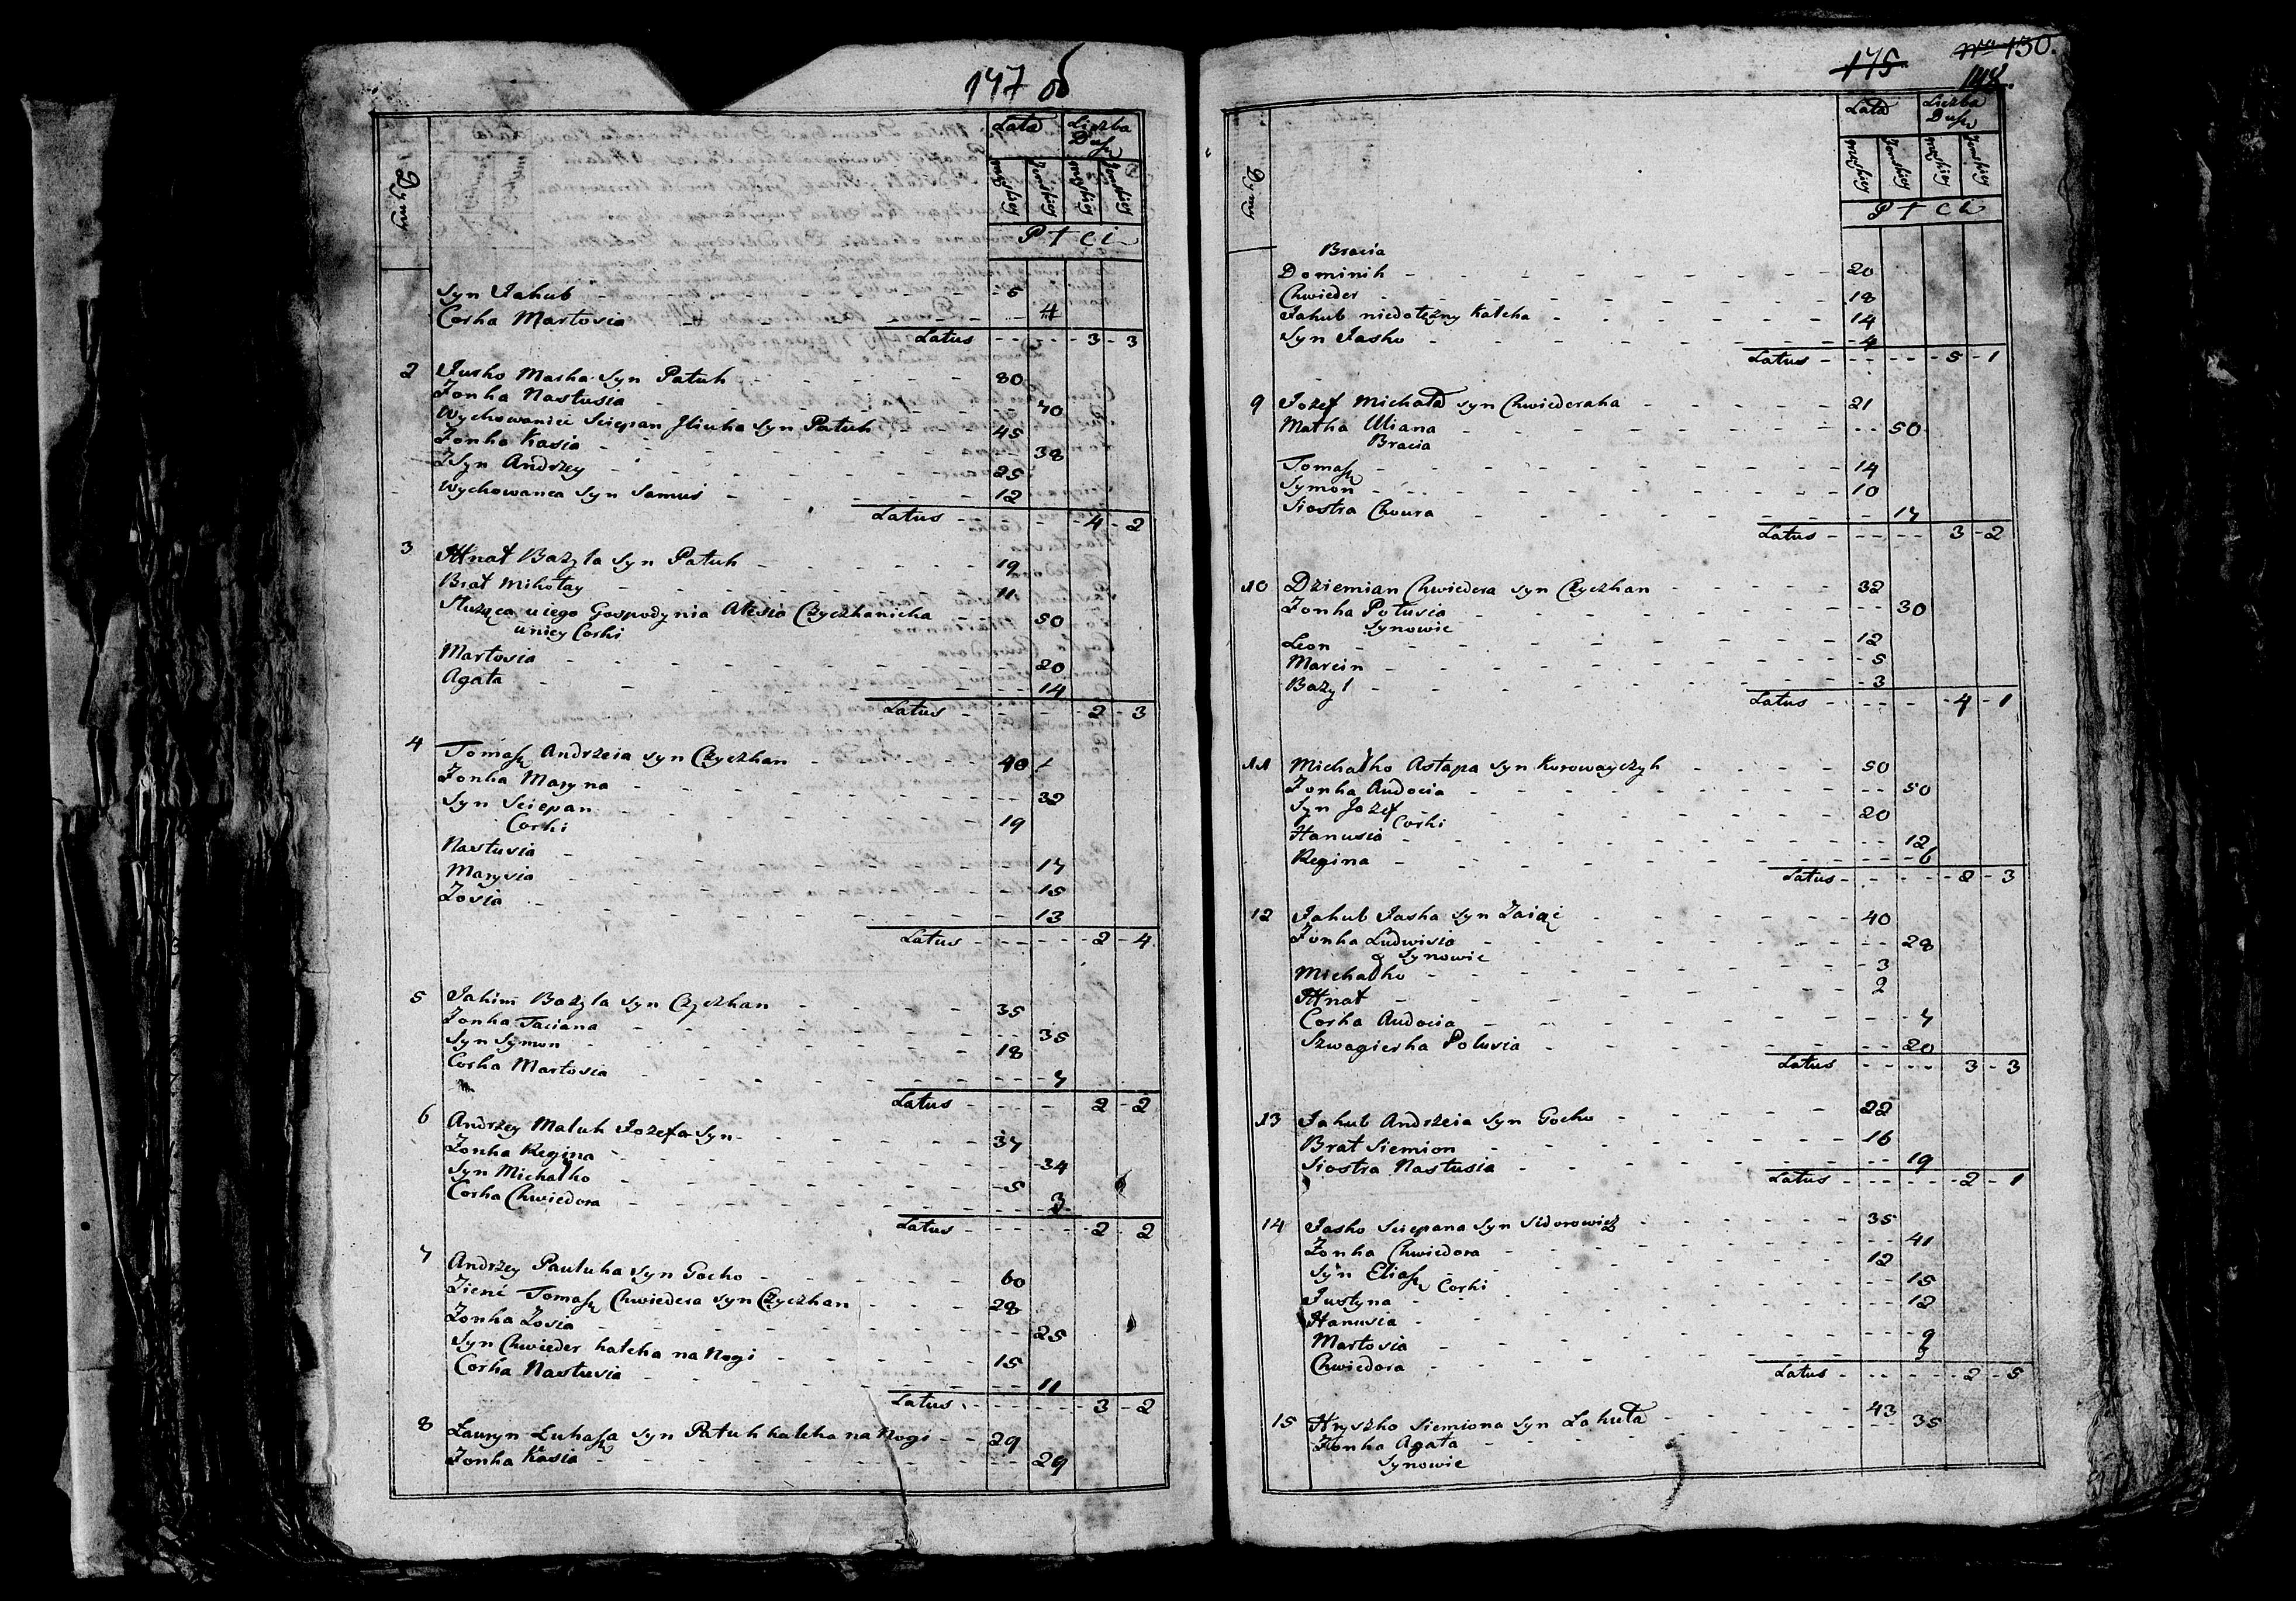 147 об
Dymy
Lata Liczba Dusz
męskiey żenskiey męskiey żenskiey
Płci
Syn Jakub - 5
Corka Martosia - 4
Latus - 3 - 3
2 Jurko Maska Syn Patuk - 80
Zonka Nastusia - 70
Wychowaniec Sciepan Jliuka Syn Patuk - 45
Zonka Kasia - 38
Syn Andrzey - 25
Wychowanca Syn Samuś - 12
Latus - 4 - 2
3 Hnat Bazyla Syn Patuk - 19
Brat Mikołay - 11
Służąca u iego Gospodynia Alesia Czyczkanicha - 50
u niey Corki
Martosia - 20
Agata - 14
Latus - 2 - 3
4 Tomasz Andrzeia syn Czyczkan - 40
Zonka Maryna - 32
Syn Sciepan - 19
Corki
Nastusia - 17
Marysia - 15
Zosia - 13
Latus - 2 - 4
5 Jakim Bazyla syn Czyczkan - 35
Zonka Taciana - 35
Syn Symon - 18
Corka Martosia - 7
Latus - 2 - 2
6 Andrzey Maluk Jozefa Syn - 37
Zonka Regina - 34
Syn Michałko - 5
Corka Chwiedora - 3
Latus - 2 - 2
7 Andrzey Pauluka syn Gocko - 60
Zienć Tomasz Chwiedera syn Czyczkan - 28
Zonka Zosia - 25
Syn Chwieder kaleka na Nogi - 15
Corka Nastusia - 11
Latus - 3 - 2
8 Łauryn Łukasza syn Patuk kaleka na Nogi - 29
Zonka Kasia - 29
175 130.
148.
Dymy
Lata Liczba Dusz
męskiey żenskiey męskiey żenskiey
Płci
Bracia
Dominik - 20
Chwieder - 18
Jakub niedołężny kaleka - 14
Syn Jasko - 4
Latus - 5 - 1
9 Jozef Michała syn Chwiederaka - 21
Matka Uliana - 50
Bracia
Tomasz - 14
Symon - 10
Siostra Chwura - 17
Latus - 3 - 2
10 Dziemian Chwiedera syn Czyczkan - 32
Zonka Połusia - 30
Synowie
Leon - 12
Marcin - 5
Bazyl - 3
Latus - 4 - 1
11 Michałko Astapa syn Korowayczyk - 50
Zonka Audocia - 50
Syn Jozef - 20
Corki
Hanusia - 12
Regina - 6
Latus - 2 - 3
12 Jakub Jaska syn Zaiąc - 40
Zonka Ludwisia - 28
Synowie
Michałko - 3
Hnat - 2
Corka Audocia - 7
Szwagierka Polusia - 20
Latus - 3 - 3
13 Jakub Andrzeia Syn Gocko - 22
Brat Siemion - 16
Siostra Nastusia - 19
Latus - 2 - 1
14 Jasko Sciepana Syn Sidorowicz - 35
Zonka Chwiedora - 41
Syn Eliasz - 12
Corki
Justyna - 15
Hanusia - 12
Martosia - 9
Chwiedora
Latus - 2 - 5
15 Hryszko Siemiona syn Łakuta - 43
Zonka Agata - 35
Synowie